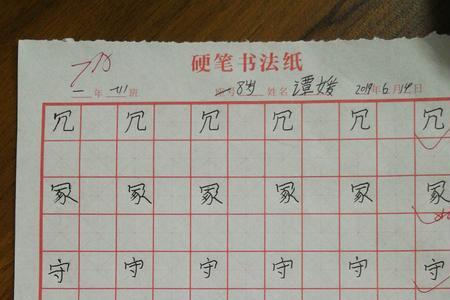 硬笔书法纸
二年班 座号 8岁 姓名 谭媛 2019年6月14日
冗 冗 冗 冗 冗 冗
冢 冢 冢 冢 冢 冢
守 守 守 守 守 守